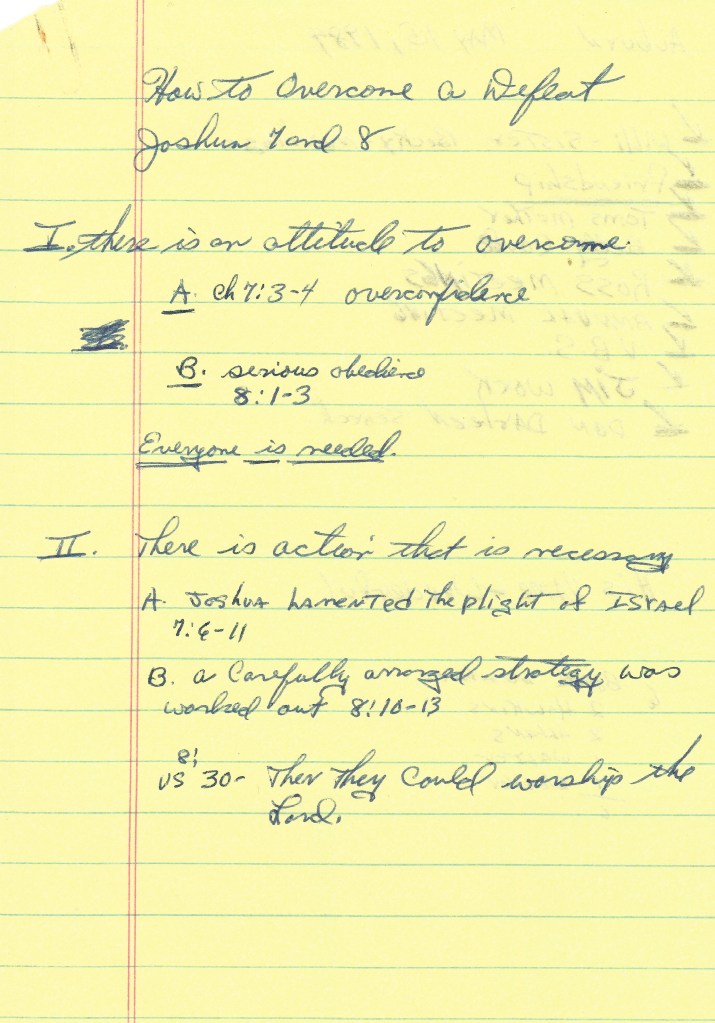 How to Overcome a Defeat
Joshua 7 and 8
I. there is an attitude to overcome.
A. ch 7:3-4 overconfidence
B. serious obedience
8:1-3
Everyone is needed.
II. There is action that is necessary
A. Joshua Lamented The plight of Israel
7:6-11
B. a Carefully arranged strategy was
worked out 8:10-13
8:
vs 30- Then They Could worship the
Lord.